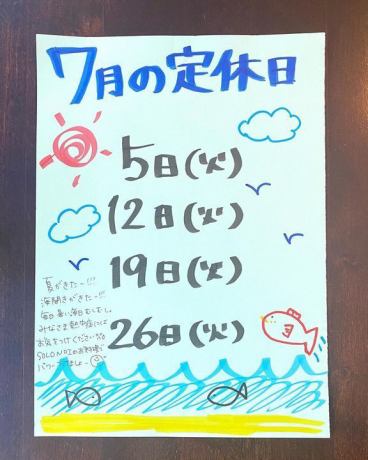 7月の定休日
5日(火)
12日(火)
19日(火)
26日(火)
夏がきたー!!!
海開きがきたー!!!
毎日暑い
みなさま熱中症には
お気をつけください
SOLO NOIのお料理で